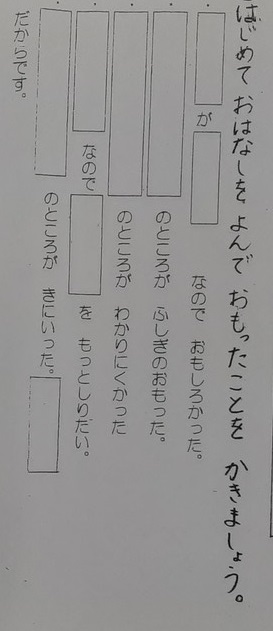 はじめて おはなしを よんで おもったことを かきましょう。
・ が なので おもしろかった。
・ のところが ふしぎのおもった。
・ のところが わかりにくかった
・ なので を もっとしりだい。
・ のところが きにいった。
だからです。